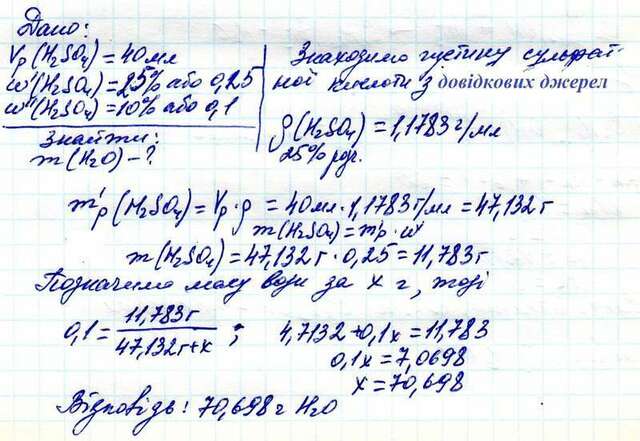 Дано:
Vр(H₂SO₄) = 40 мл
w'(H₂SO₄) = 25% або 0,25
w''(H₂SO₄) = 10% або 0,1
Знайти:
m(H₂O) - ?
Знаходимо густину сульфат-
ної кислоти з довідкових джерел
ρ(H₂SO₄) = 1,1783 г/мл
25% розч.
m'р(H₂SO₄) = Vр · ρ = 40 мл · 1,1783 г/мл = 47,132 г
m(H₂SO₄) = m'р · w'
m(H₂SO₄) = 47,132 г · 0,25 = 11,783 г
Позначимо масу води за x г, тоді
0,1 = 11,783 г / 47,132 г + x ; 4,7132 + 0,1x = 11,783
0,1x = 7,0698
x = 70,698
Відповідь: 70,698 г H₂O